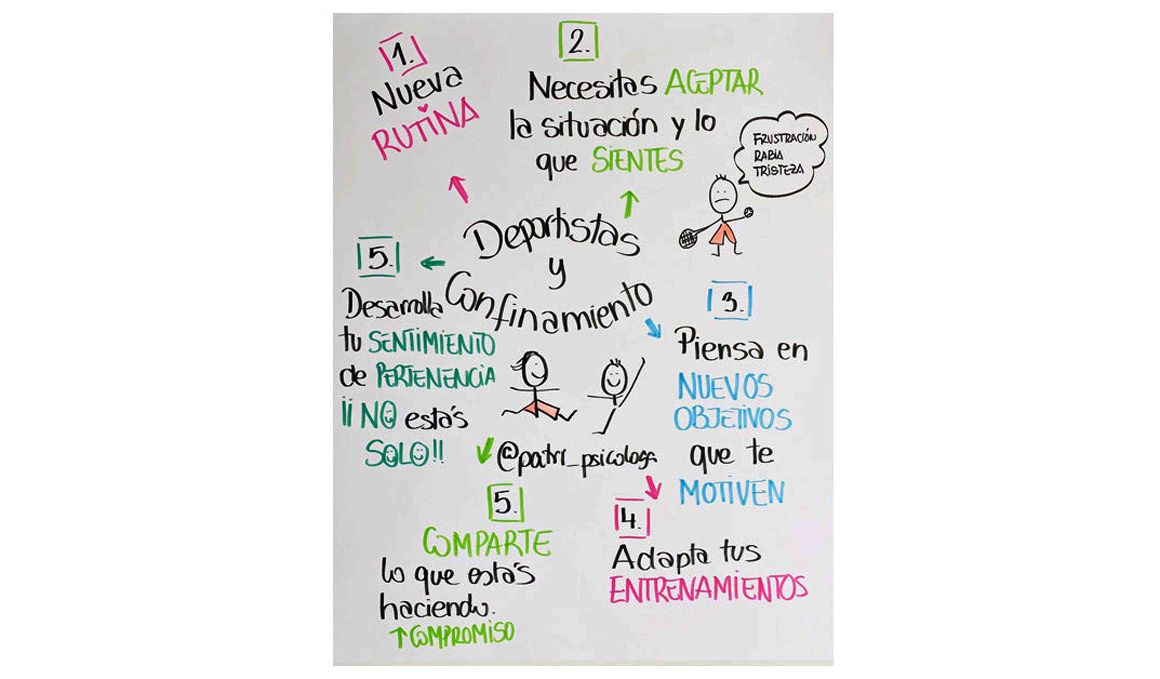 Deportistas
y
Confinamiento
1.
Nueva
RUTINA
2.
Necesitas ACEPTAR
la situación y lo
que SIENTES
FRUSTRACIÓN
RABIA
TRISTEZA
3.
Piensa en
NUEVOS
OBJETIVOS
que te
MOTIVEN
4.
Adapta tus
ENTRENAMIENTOS
5.
COMPARTE
lo que estás
haciendo.
↑COMPROMISO
5.
Desarrolla
tu SENTIMIENTO
de PERTENENCIA
¡¡NO estás
SOLO!!
@patri_psicologa